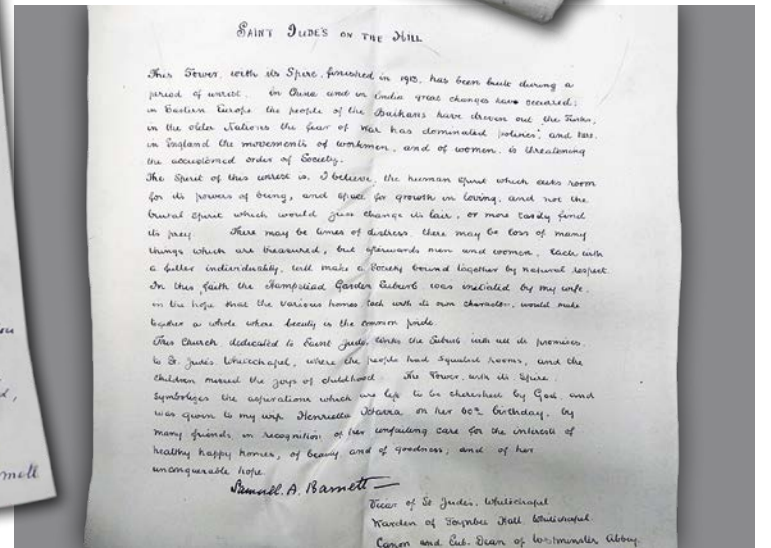 SAINT JUDE'S ON THE HILL
This Tower, with its Spire, finished in 1913, has been built during a
period of unrest. in China and in India great changes have occured;
in Eastern Europe the people of the Balkans have driven out the Turks,
in the older Nations the fear of war has dominated politics; and
in England the movements of workmen, and of women, is threatening
the accustomed order of Society.
The Spirit of this unrest is, I believe, the human spirit which asks room
for its powers of being, and space for growth in loving, and not the
brutal spirit which would just change its lair, or more easily find
its prey. There may be times of distress, there may be loss of many
things which are treasured, but afterwards men and women, each with
a fuller individuality, will make a Society bound together by natural respect.
In this faith the Hampstead Garden Suburb was initiated by my wife,
in the hope that the various homes, each with its own character, would make
together a whole where beauty is the common pride.
This Church dedicated to Saint Jude, links the Suburb with all its promises
to St. Jude's Whitechapel, where the people had squalid rooms, and the
children missed the joys of childhood. The Tower, with its Spire,
symbolizes the aspirations which are left to be cherished by God, and
was given to my wife Henrietta Octavia, on her 60th birthday, by
many friends, in recognition of her unfailing care for the interests of
healthy happy homes, of beauty and of goodness, and of her
unconquerable hope.
Samuel. A. Barnett
Vicar of St Jude's. Whitechapel
Warden of Toynbee Hall. Whitechapel.
Canon and Sub. Dean of Westminster Abbey.